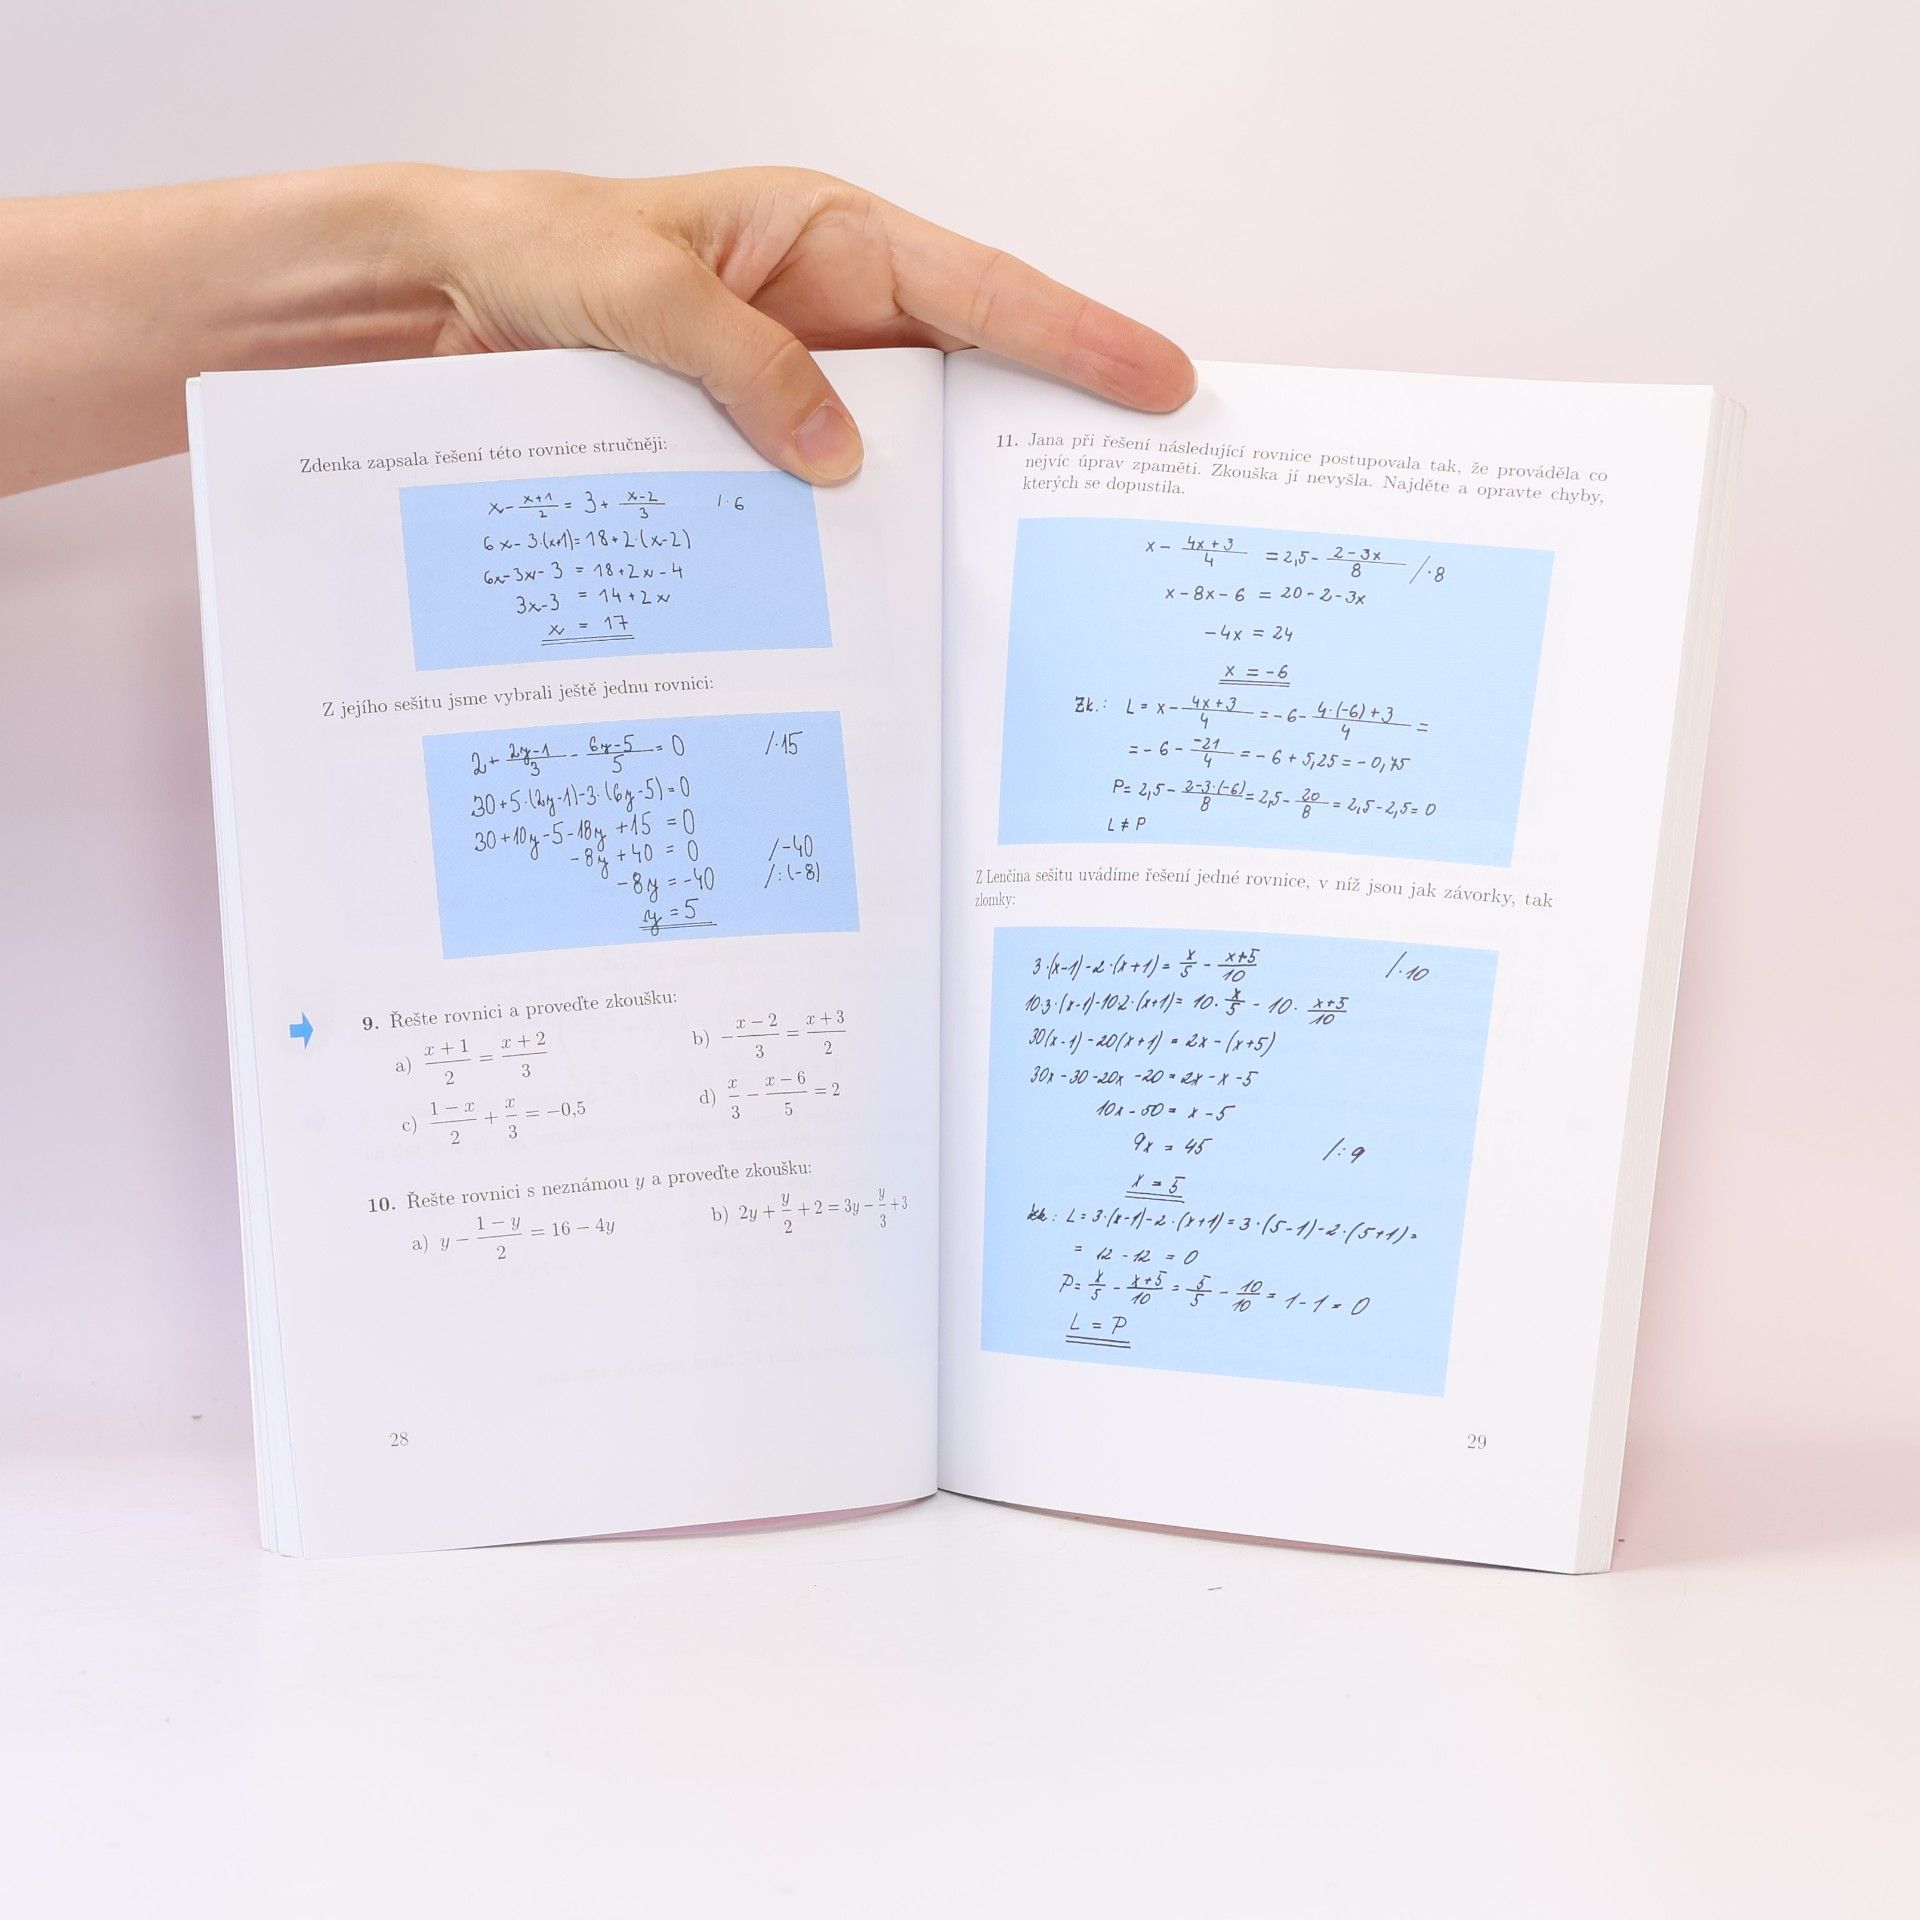 Zdenka zapsala řešení této rovnice stručněji:
x - (x+1)/2 = 3 + (x-2)/3 /·6
6x - 3·(x+1) = 18 + 2·(x-2)
6x - 3x - 3 = 18 + 2x - 4
3x - 3 = 14 + 2x
x = 17
Z jejího sešitu jsme vybrali ještě jednu rovnici:
2 + (2y-1)/3 - (6y-5)/5 = 0 /·15
30 + 5·(2y-1) - 3·(6y-5) = 0
30 + 10y - 5 - 18y + 15 = 0
-8y + 40 = 0 /-40
-8y = -40 /:(-8)
y = 5
9. Řešte rovnici a proveďte zkoušku:
a) (x+1)/2 = (x+2)/3 b) -(x-2)/3 = (x+3)/2
c) (1-x)/2 + x/3 = -0,5 d) x/3 - (x-6)/5 = 2
10. Řešte rovnici s neznámou y a proveďte zkoušku:
a) y - (1-y)/2 = 16 - 4y b) 2y + y/2 + 2 = 3y - y/3 + 3
28
11. Jana při řešení následující rovnice postupovala tak, že prováděla co
nejvíc úprav zpaměti. Zkouška jí nevyšla. Najděte a opravte chyby,
kterých se dopustila.
x - (4x+3)/4 = 2,5 - (2-3x)/8 /·8
x - 8x - 6 = 20 - 2 - 3x
-4x = 24
x = -6
Zk.: L = x - (4x+3)/4 = -6 - (4·(-6)+3)/4 =
= -6 - (-21)/4 = -6 + 5,25 = -0,75
P = 2,5 - (2-3·(-6))/8 = 2,5 - 20/8 = 2,5 - 2,5 = 0
L ≠ P
Z Lenčina sešitu uvádíme řešení jedné rovnice, v níž jsou jak závorky, tak
zlomky:
3·(x-1) - 2·(x+1) = x/5 - (x+5)/10 /·10
10·3·(x-1) - 10·2·(x+1) = 10·x/5 - 10·(x+5)/10
30(x-1) - 20(x+1) = 2x - (x+5)
30x - 30 - 20x - 20 = 2x - x - 5
10x - 50 = x - 5
9x = 45 /:9
x = 5
Zk.: L = 3·(x-1) - 2·(x+1) = 3·(5-1) - 2·(5+1) =
= 12 - 12 = 0
P = x/5 - (x+5)/10 = 5/5 - 10/10 = 1 - 1 = 0
L = P
29